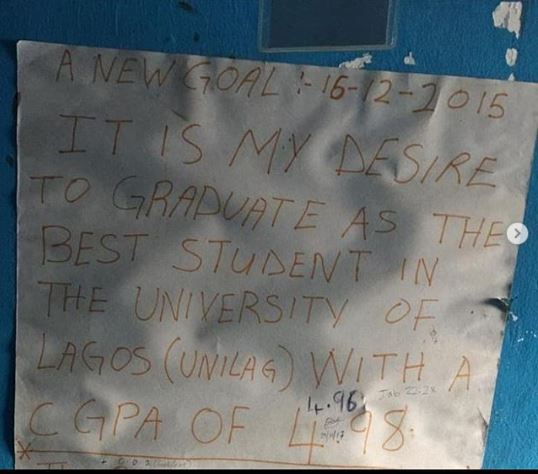 A NEW GOAL :- 16-12-2015
IT IS MY DESIRE
TO GRADUATE AS THE
BEST STUDENT IN
THE UNIVERSITY OF
LAGOS (UNILAG) WITH A
4.96
CGPA OF 4.98